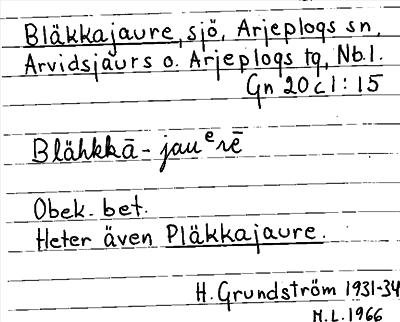 Bläkkajaure, sjö, Arjeplogs sn,
Arvidsjaurs o. Arjeplogs tg, Nb.l.
Gn 20 c 1 : 15
Blähkkā - jauᵉrē
Obek. bet.
Heter även Pläkkajaure.
H. Grundström 1931-34
M.L. 1966